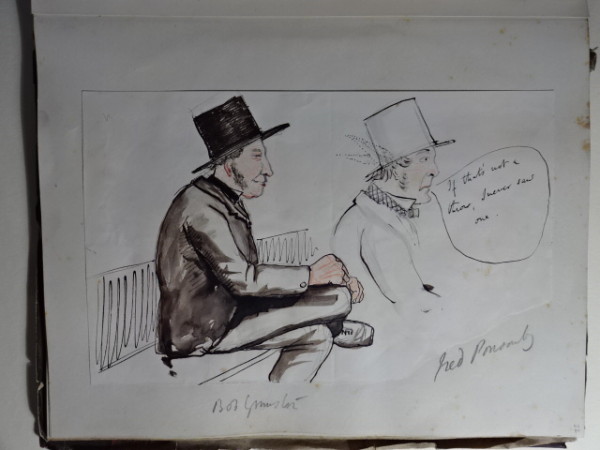 If that's not a
throw, I never saw
one.
Fred Ponsonby
Bob Grimston